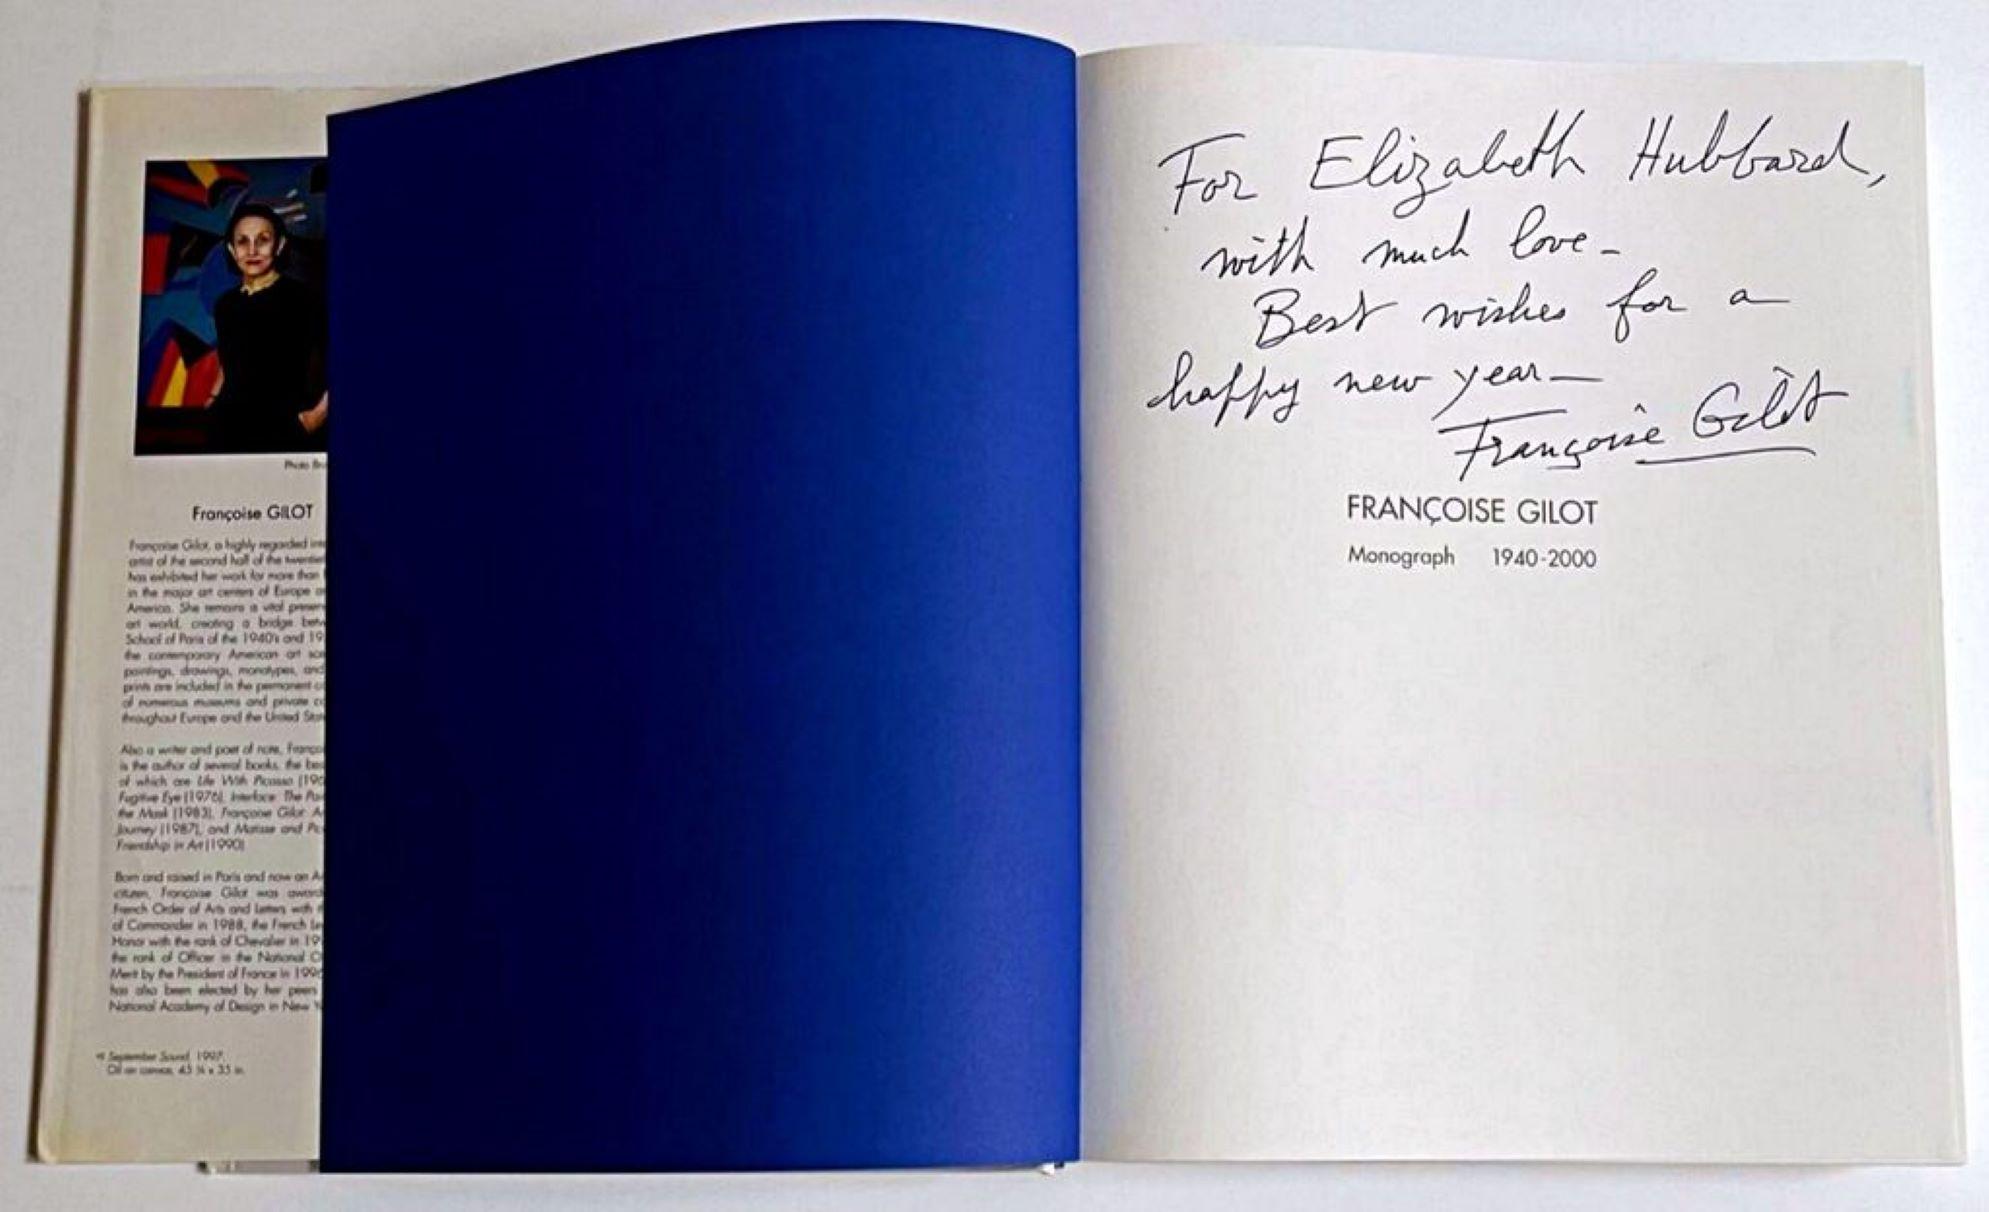 Photo Bru
Françoise GILOT
Françoise Gilot, a highly regarded inte
artist of the second half of the twentiet
has exhibited her work for more than
in the major art centers of Europe an
America. She remains a vital presen
art world, creating a bridge betw
School of Paris of the 1940's and 19
the contemporary American art sce
paintings, drawings, monotypes, and
prints are included in the permanent co
of numerous museums and private co
throughout Europe and the United Stat
Also a writer and poet of note, Françoi
is the author of several books, the bes
of which are Life With Picasso (196
Fugitive Eye (1976), Interface: The Pai
the Mask (1983), Françoise Gilot: An
Journey (1987), and Matisse and Pic
Friendship in Art (1990)
Born and raised in Paris and now an A
citizen, Françoise Gilot was award
French Order of Arts and Letters with t
of Commander in 1988, the French Le
Honor with the rank of Chevalier in 19
the rank of Officer in the National O
Merit by the President of France in 1996
has also been elected by her peers
National Academy of Design in New Y
September Sound, 1997.
Oil on canvas, 45 ¾ x 35 in.
For Elizabeth Hubbard,
with much love -
Best wishes for a
happy new year —
Françoise Gilot
FRANÇOISE GILOT
Monograph 1940-2000